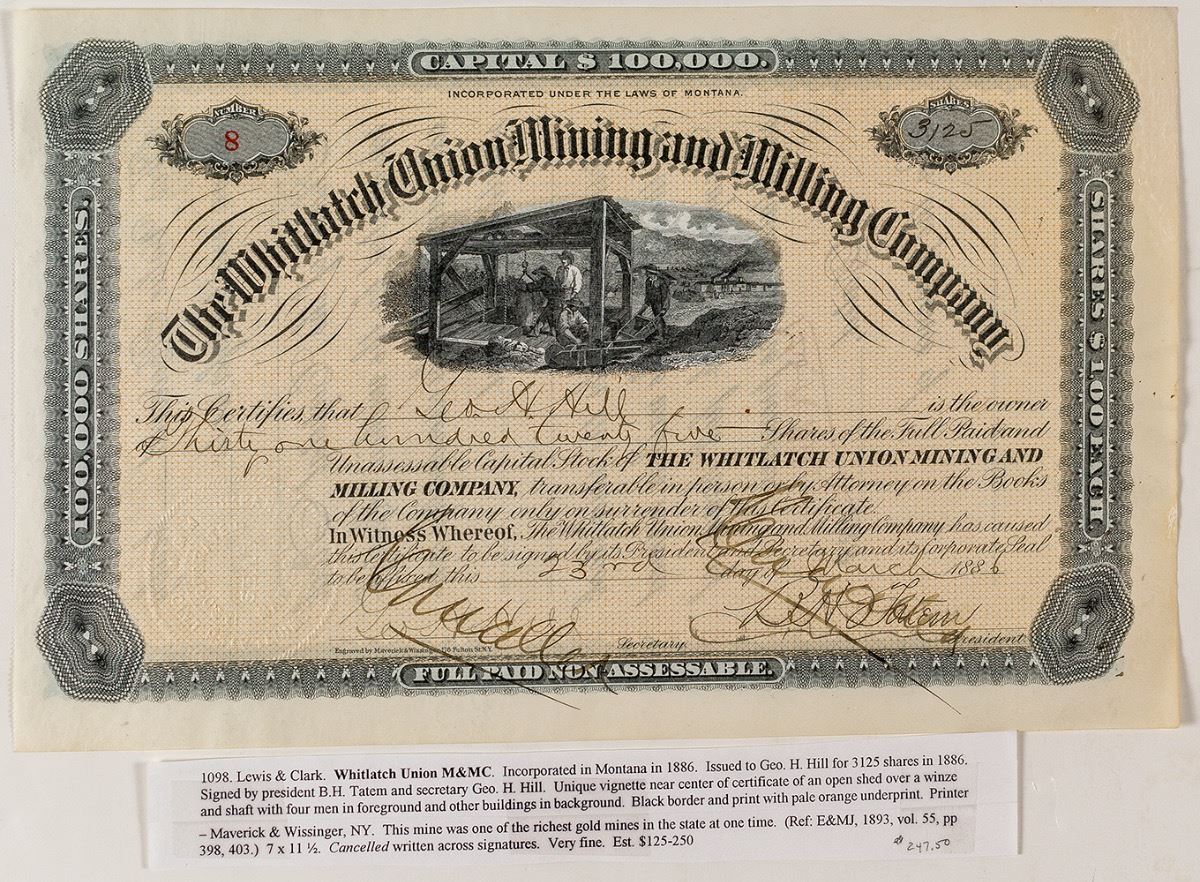 CAPITAL $ 100,000.
INCORPORATED UNDER THE LAWS OF MONTANA.
NUMBER
8
SHARES
3125
The Whitlatch Union Mining and Milling Company
100,000 SHARES.
SHARES $ 1.00 EACH.
This Certifies, that Geo H Hill is the owner
of Thirty one hundred twenty five Shares of the Full Paid and
Unassessable Capital Stock of THE WHITLATCH UNION MINING AND
MILLING COMPANY, transferable in person or by Attorney on the Books
of the Company only on surrender of this Certificate.
In Witness Whereof, The Whittlatch Union Mining and Milling Company has caused
this Certificate to be signed by its President and Secretary and its Corporate Seal
to be affixed this 23rd day of March 1886
Geo H Hill
Secretary.
B H Tatem
President
Engraved by Maverick & Wissinger, 176 Fulton St. N.Y.
FULL PAID NON-ASSESSABLE.
1098. Lewis & Clark. Whitlatch Union M&MC. Incorporated in Montana in 1886. Issued to Geo. H. Hill for 3125 shares in 1886.
Signed by president B.H. Tatem and secretary Geo. H. Hill. Unique vignette near center of certificate of an open shed over a winze
and shaft with four men in foreground and other buildings in background. Black border and print with pale orange underprint. Printer
– Maverick & Wissinger, NY. This mine was one of the richest gold mines in the state at one time. (Ref: E&MJ, 1893, vol. 55, pp
398, 403.) 7 x 11 ½. Cancelled written across signatures. Very fine. Est. $125-250
$ 247.50